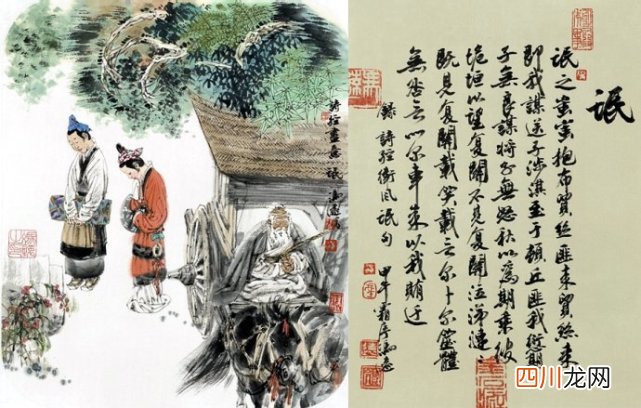 詩經畫意 氓
氓
氓之蚩蚩抱布貿絲匪来貿絲来
即我謀送子涉淇至于頓丘匪我愆期
子無良媒將子無怒秋以為期乘彼
垝垣以望复關不見复關泣涕漣〻
既見复關載笑載言尔卜尔筮體
無咎言以尔車来以我賄迁
録詩經衛風氓句
甲午
四川龙网